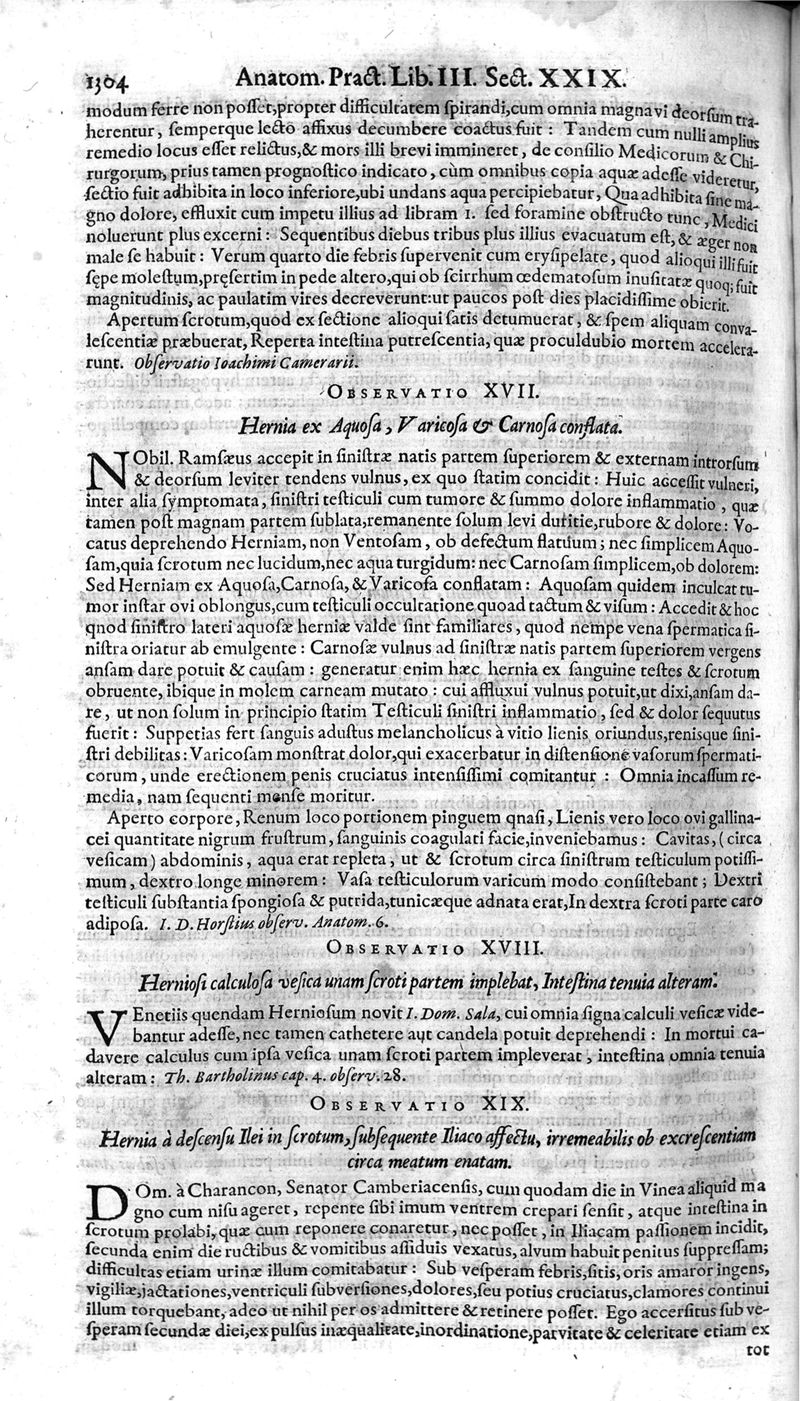 1304 Anatom. Pract. Lib. III. Sect. XXIX.
modum ferre non poſſet,propter difficultatem ſpirandi,cum omnia magna vi deorſum tra-
herentur, ſemperque lecto affixus decumbere coactus fuit : Tandem cum nulli amplius
remedio locus eſſet relictus,& mors illi brevi immineret, de conſilio Medicorum & Chi-
rurgorum, prius tamen prognoſtico indicato, cùm omnibus copia aquæ adeſſe videretur,
ſectio fuit adhibita in loco inferiore,ubi undans aqua percipiebatur, Qua adhibita ſine ma-
gno dolore, effluxit cum impetu illius ad libram 1. ſed foramine obſtructo tunc, Medici
noluerunt plus excerni : Sequentibus diebus tribus plus illius evacuatum eſt, & æger non
male ſe habuit : Verum quarto die febris ſupervenit cum eryſipelate, quod alioqui illi fuit
ſępe moleſtum,pręſertim in pede altero,qui ob ſcirrhum œdematoſum inuſitatæ quoq; fuit
magnitudinis, ac paulatim vires decreverunt:ut paucos poſt dies placidiſſime obierit.
Apertum ſcrotum,quod ex ſectione alioqui ſatis detumuerat, & ſpem aliquam conva-
leſcentiæ præbuerat, Reperta inteſtina putreſcentia, quæ proculdubio mortem accelera-
runt. Obſervatio Ioachimi Camerarii.
OBSERVATIO XVII.
Hernia ex Aquoſa, Varicoſa & Carnoſa conflata.
NObil. Ramſæus accepit in ſiniſtræ natis partem ſuperiorem & externam introrſum
& deorſum leviter tendens vulnus, ex quo ſtatim concidit : Huic acceſſit vulneri,
inter alia ſymptomata, ſiniſtri teſticuli cum tumore & ſummo dolore inflammatio, quæ
tamen poſt magnam partem ſublata,remanente ſolum levi duritie,rubore & dolore : Vo-
catus deprehendo Herniam, non Ventoſam, ob defectum flatuum; nec ſimplicem Aquo-
ſam,quia ſcrotum nec lucidum,nec aqua turgidum: nec Carnoſam ſimplicem,ob dolorem:
Sed Herniam ex Aquoſa,Carnoſa, & Varicoſa conflatam : Aquoſam quidem inculcat tu-
mor inſtar ovi oblongus,cum teſticuli occultatione quoad tactum & viſum : Accedit & hoc
qnod ſiniſtro lateri aquoſæ herniæ valde ſint familiares, quod nempe vena ſpermatica ſi-
niſtra oriatur ab emulgente : Carnoſæ vulnus ad ſiniſtræ natis partem ſuperiorem vergens
anſam dare potuit & cauſam : generatur enim hæc hernia ex ſanguine teſtes & ſcrotum
obruente, ibique in molem carneam mutato : cui affluxui vulnus potuit,ut dixi,anſam da-
re, ut non ſolum in principio ſtatim Teſticuli ſiniſtri inflammatio, ſed & dolor ſequutus
fuerit : Suppetias fert ſanguis aduſtus melancholicus à vitio lienis oriundus,renisque ſini-
ſtri debilitas : Varicoſam monſtrat dolor,qui exacerbatur in diſtenſione vaſorum ſpermati-
corum, unde erectionem penis cruciatus intenſiſſimi comitantur : Omnia incaſſum re-
media, nam ſequenti menſe moritur.
Aperto corpore, Renum loco portionem pinguem qnaſi, Lienis vero loco ovi gallina-
cei quantitate nigrum fruſtrum, ſanguinis coagulati facie,inveniebamus : Cavitas, ( circa
veſicam ) abdominis, aqua erat repleta, ut & ſcrotum circa ſiniſtrum teſticulum potiſſi-
mum, dextro longe minorem : Vaſa teſticulorum varicum modo conſiſtebant ; Dextri
teſticuli ſubſtantia ſpongioſa & putrida,tunicæque adnata erat,In dextra ſcroti parte caro
adipoſa. I. D. Horſtius obſerv. Anatom. 6.
OBSERVATIO XVIII.
Hernioſi calculoſa veſica unam ſcroti partem implebat, Inteſtina tenuia alteram.
VEnetiis quendam Hernioſum novit I. Dom. Sala, cui omnia ſigna calculi veſicæ vide-
bantur adeſſe, nec tamen cathetere aut candela potuit deprehendi : In mortui ca-
davere calculus cum ipſa veſica unam ſcroti partem impleverat, inteſtina omnia tenuia
alteram : Th. Bartholinus cap. 4. obſerv. 28.
OBSERVATIO XIX.
Hernia à deſcenſu Ilei in ſcrotum, ſubſequente Iliaco affectu, irremeabilis ob excreſcentiam
circa meatum enatam.
DOm. à Charancon, Senator Camberiacenſis, cum quodam die in Vinea aliquid ma
gno cum niſu ageret, repente ſibi imum ventrem crepari ſenſit, atque inteſtina in
ſcrotum prolabi, quæ cum reponere conaretur, nec poſſet, in Iliacam paſſionem incidit,
ſecunda enim die ructibus & vomitibus aſſiduis vexatus, alvum habuit penitus ſuppreſſam;
difficultas etiam urinæ illum comitabatur : Sub veſperam febris,ſitis, oris amaror ingens,
vigiliæ,jactationes,ventriculi ſubverſiones,dolores,ſeu potius cruciatus,clamores continui
illum torquebant, adeo ut nihil per os admittere & retinere poſſet. Ego accerſitus ſub ve-
ſperam ſecundæ diei, ex pulſus inæqualitate,inordinatione,parvitate & celeritate etiam ex
tot